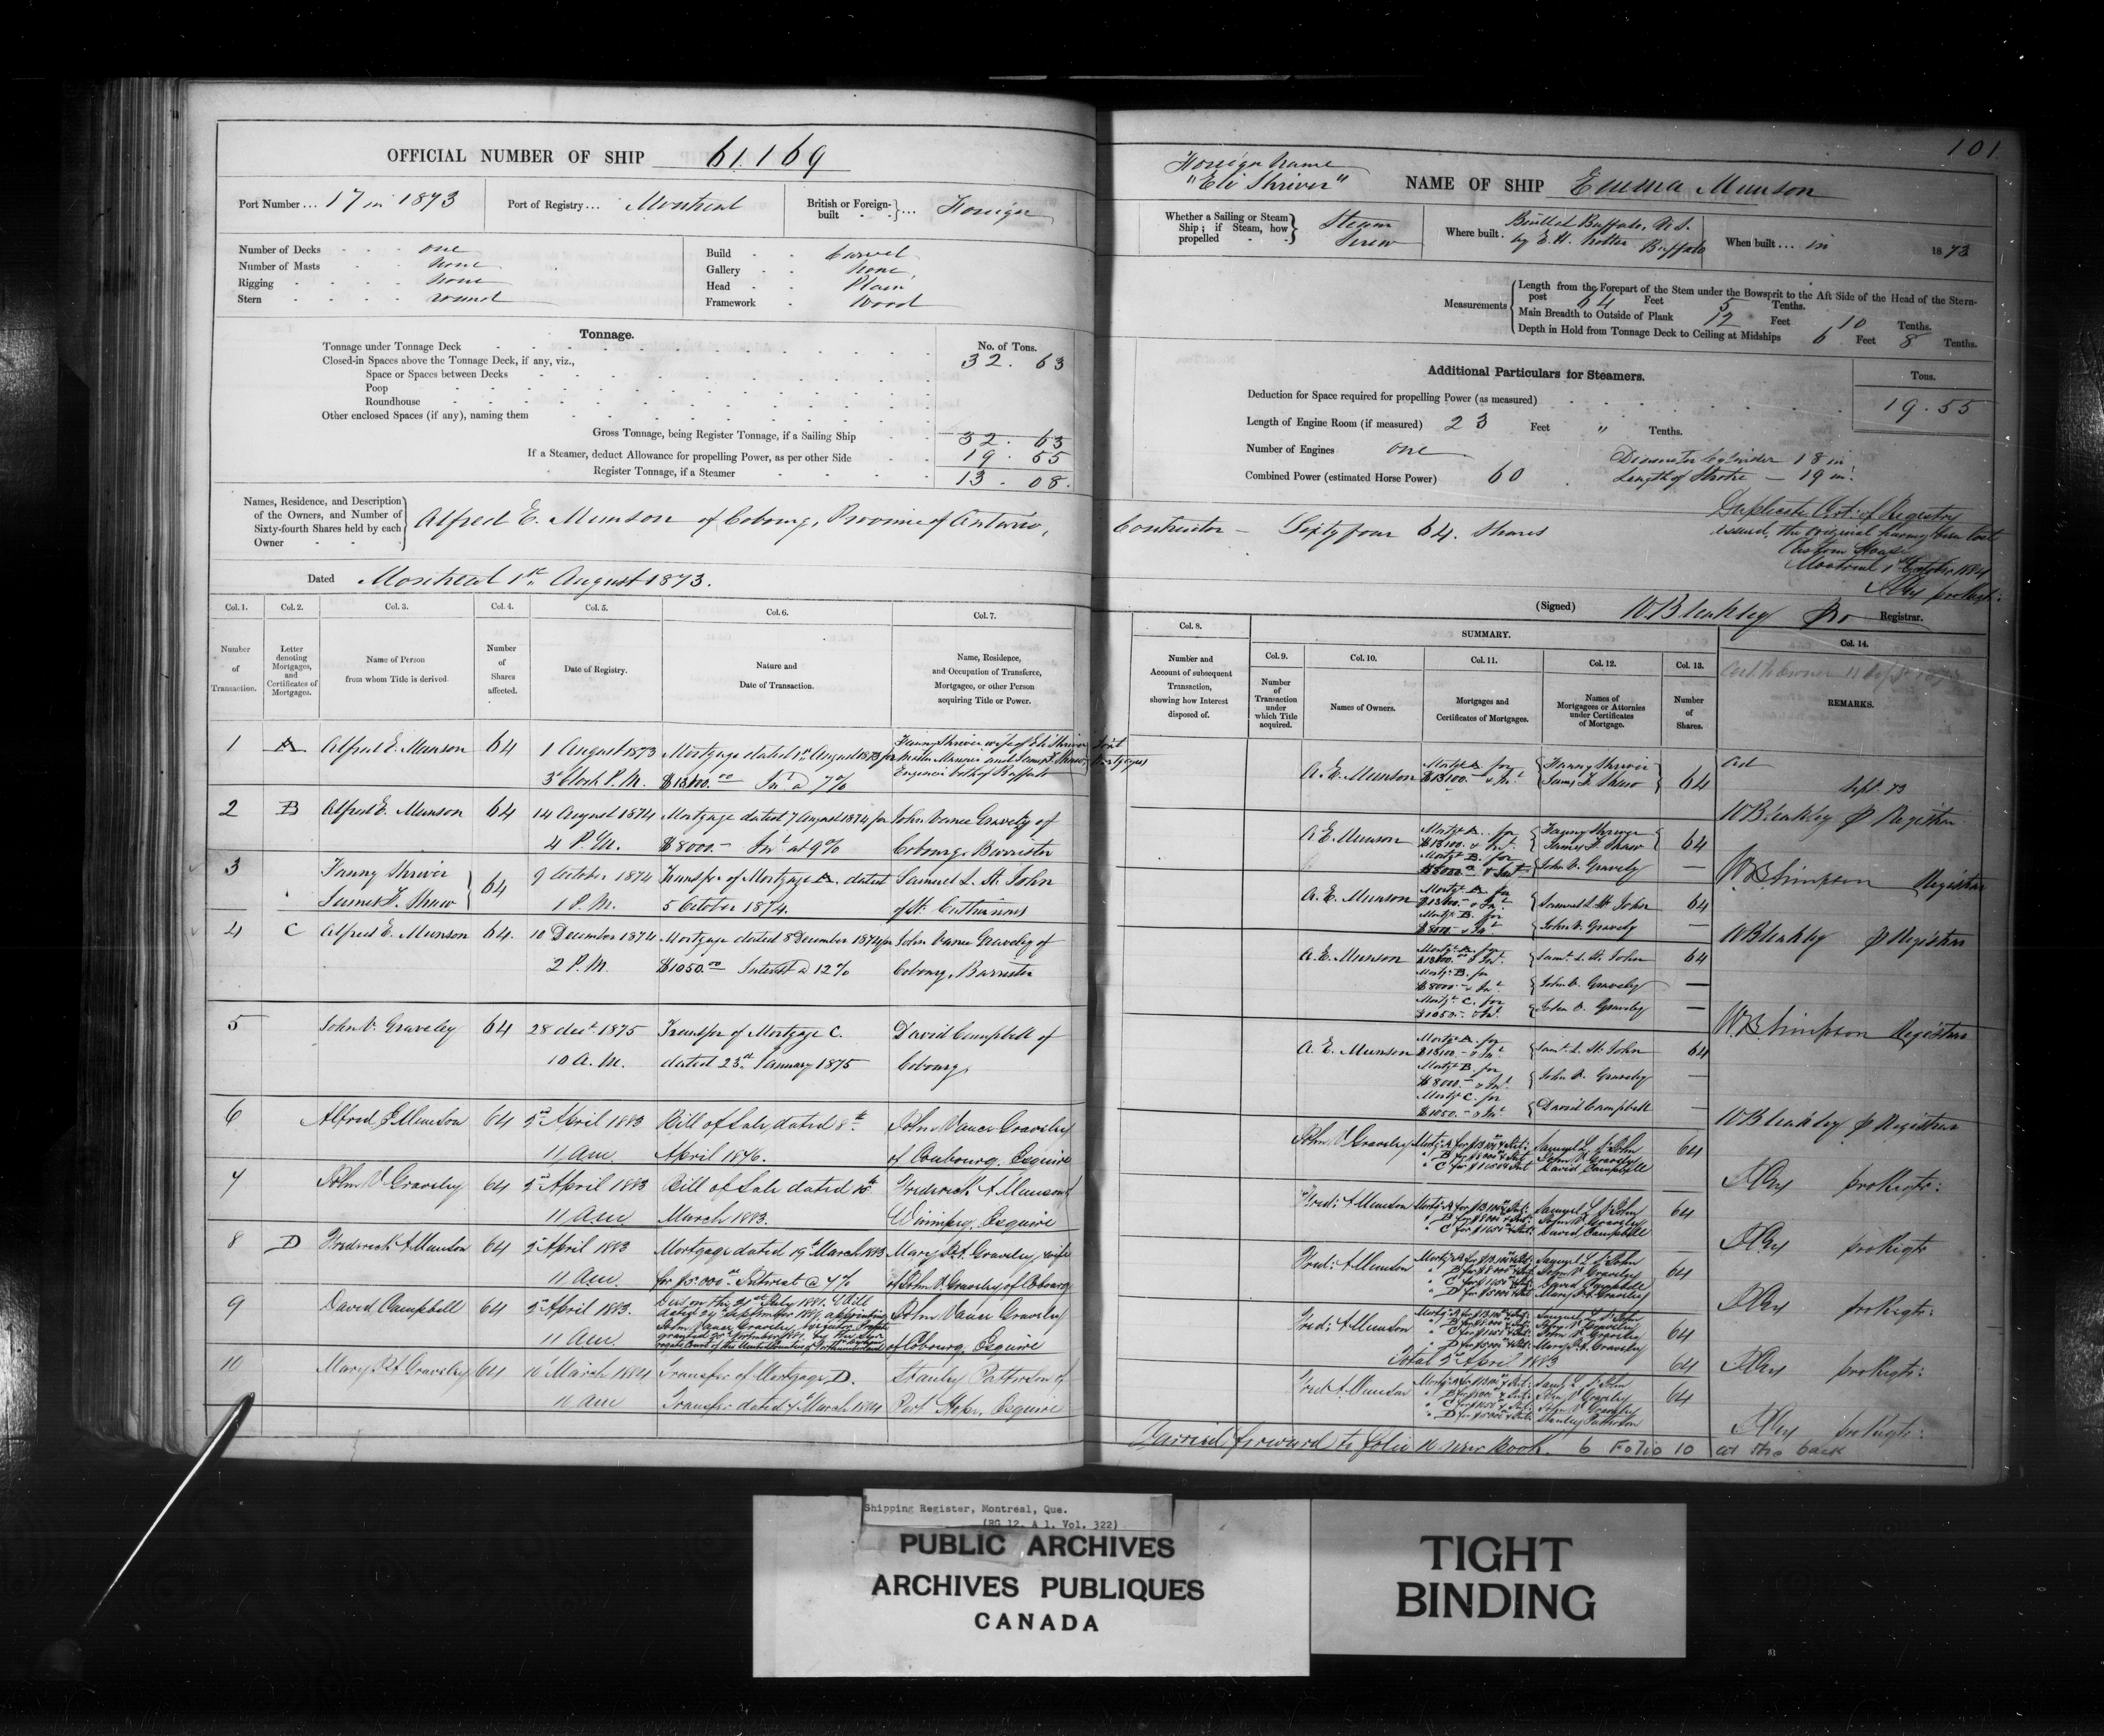 OFFICIAL NUMBER OF SHIP 61.169
Port Number ... 17 in 1873
Port of Registry ... Montreal
British or Foreign-built ... Foreign
Number of Decks one
Number of Masts none
Rigging none
Stern round
Build Carvel
Gallery none
Head Plain
Framework Wood
Tonnage.
No. of Tons.
Tonnage under Tonnage Deck 32. 63
Closed-in Spaces above the Tonnage Deck, if any, viz.,
Space or Spaces between Decks
Poop
Roundhouse
Other enclosed Spaces (if any), naming them
Gross Tonnage, being Register Tonnage, if a Sailing Ship 32. 63
If a Steamer, deduct Allowance for propelling Power, as per other Side 19. 55
Register Tonnage, if a Steamer 13. 08.
Names, Residence, and Description of the Owners, and Number of Sixty-fourth Shares held by each Owner
Alfred E. Munson of Cobourg, Province of Ontario,
Dated Montreal 1st August 1873.
Col. 1. Col. 2. Col. 3. Col. 4. Col. 5. Col. 6. Col. 7.
Number of Transaction.
Letter denoting Mortgages, and Certificates of Mortgages.
Name of Person from whom Title is derived.
Number of Shares affected.
Date of Registry.
Nature and Date of Transaction.
Name, Residence, and Occupation of Transferee, Mortgagee, or other Person acquiring Title or Power.
1 A Alfred E. Munson 64 1 August 1873 Mortgage dated 1st August 1873 for Fanny Shriver wife of Eli Shriver
3 o'Clock P.M. $13100.00 Int a 7% Engineer both of Buffalo
2 B Alfred E. Munson 64 14 August 1874 Mortgage dated 7 August 1874 for John Vance Gravely of
4 P.M. $8000.- Int at 9% Cobourg, Barrister
3 Fanny Shriver 64 9 October 1874 Transfer of Mortgage A. dated Samuel L. St. John
James F. Shaw 1 P.M. 5 October 1874. of St. Catharines
4 C Alfred E. Munson 64. 10 December 1874 Mortgage dated 8 December 1874 for John Vance Graveley of
2 P.M. $1050.00 Interest @ 12% Cobourg, Barrister
5 John V. Graveley 64 28 Decr 1875 Transfer of Mortgage C. David Campbell of
10 A.M. dated 23rd January 1875 Cobourg,
6 Alfred E Munson 64 2nd April 1883 Bill of Sale, dated 8th John Vance Graveley
11 am April 1876. of Coubourg, Esquire
7 John V Graveley 64 2nd April 1883 Bill of Sale dated 10th Frederick A Munson
11 am March 1883. Winnipeg, Esquire
8 D Frederick A Munson 64 2nd April 1883 Mortgage dated 19th March 1883 Mary P.A. Graveley, wife
11 am for $5.000.00 Interest @ 7% of John V Graveley of Cobourg
9 David Campbell 64 2nd April 1883. John Vance Graveley
11 am of Cobourg, Esquire
10 Mary P.A. Graveley 64 10 March 1884 Transfer of Mortgage D. Stanley Patterson of
11 am Transfer dated 7 March 1884 Port Hope, Esquire
101
Foreign Name
"Eli Shriver"
NAME OF SHIP Emma Munson
Whether a Sailing or Steam Ship; if Steam, how propelled Steam Screw
Where built. Built at Buffalo, U.S. by E.H. Notter Buffalo
When built ... in 1873
Measurements
Length from the Forepart of the Stem under the Bowsprit to the Aft Side of the Head of the Stern-post 64 Feet 5 Tenths.
Main Breadth to Outside of Plank 12 Feet 10 Tenths.
Depth in Hold from Tonnage Deck to Ceiling at Midships 6 Feet 8 Tenths.
Additional Particulars for Steamers.
Tons.
Deduction for Space required for propelling Power (as measured) 19. 55
Length of Engine Room (if measured) 23 Feet " Tenths.
Number of Engines one
Diameter Cylinder 18 in:
Combined Power (estimated Horse Power) 60
Length of Stroke — 19 in:
Contractor — Sixty four 64. Shares
Duplicate Cert: of Registry
issued, the original having been lost
Custom House
Montreal 1st October 1884
(Signed) WBleakley pro Registrar.
Col. 8.
SUMMARY.
Col. 9. Col. 10. Col. 11. Col. 12. Col. 13. Col. 14.
Number and Account of subsequent Transaction, showing how Interest disposed of.
Number of Transaction under which Title acquired.
Names of Owners.
Mortgages and Certificates of Mortgages.
Names of Mortgagees or Attornies under Certificates of Mortgage.
Number of Shares.
REMARKS.
A.E. Munson Mortge A. for $13100.- & Int Fanny Shriver James F. Shaw 64
Sept. 73
WBleakley p Registrar
A.E. Munson Mortge A. for $13100. & Int. Fanny Shriver James F. Shaw 64
Mortge B. for $8000 & Int John V. Gravely —
WBSimpson Registrar
A.E. Munson Mortge A. for $13100.- & Int Samuel L. St John 64
Mortge B. for $8000.- & Int John V. Gravely —
WBleakley p Registrar
A.E. Munson Mortge A. for $13100.00 & Int. Saml L. St. John 64
Mortge B. for $8000.- & Int John V. Graveley —
Mortge C. for $1050.- & Int John V. Graveley —
WBSimpson Registrar
A.E. Munson Mortge A. for $13100.- & Int Saml L. St. John 64
Mortge B. for $8000.- & Int. John V. Graveley —
Mortge C. for $1050.- & Int David Campbell —
WBleakley p Registrar
John V Graveley Samuel L St John John V Graveley David Campbell 64
pro Regtr:
Fred: A Munson Samuel L St John John V Graveley David Campbell 64
pro Regtr
Fred: A Munson Samuel L St John John V Graveley David Campbell Mary P.A. Graveley 64
pro Regtr:
Fred: A Munson Samuel L St John John V Graveley John V Graveley Mary P.A. Graveley 64
Total 2nd April 1883 64
pro Regtr:
Fred A Munson Saml L St John John V Graveley John V Graveley Stanley Patterson 64
pro Regtr:
Carried forward to folio 10 new Book. 6 Folio 10 at the back
Shipping Register, Montreal, Que.
(RG 12, A 1, Vol. 322)
PUBLIC ARCHIVES
ARCHIVES PUBLIQUES
CANADA
TIGHT
BINDING
83